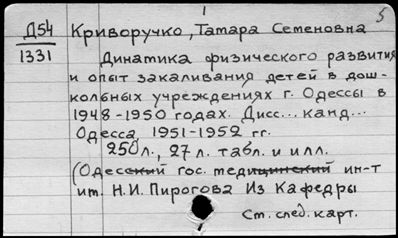 1
5
Д54 Криворучко, Тамара Семеновна
1331
Динамика физического развития
и опыт закаливания детей в дош-
кольных учреждениях г. Одессы в
1948-1950 годах. Дисс... канд...
Одесса, 1951-1952 гг.
250л., 27 л. табл. и илл.
(Одесский гос. медицинский ин-т
им. Н.И. Пирогова Из Кафедры
См. след. карт.